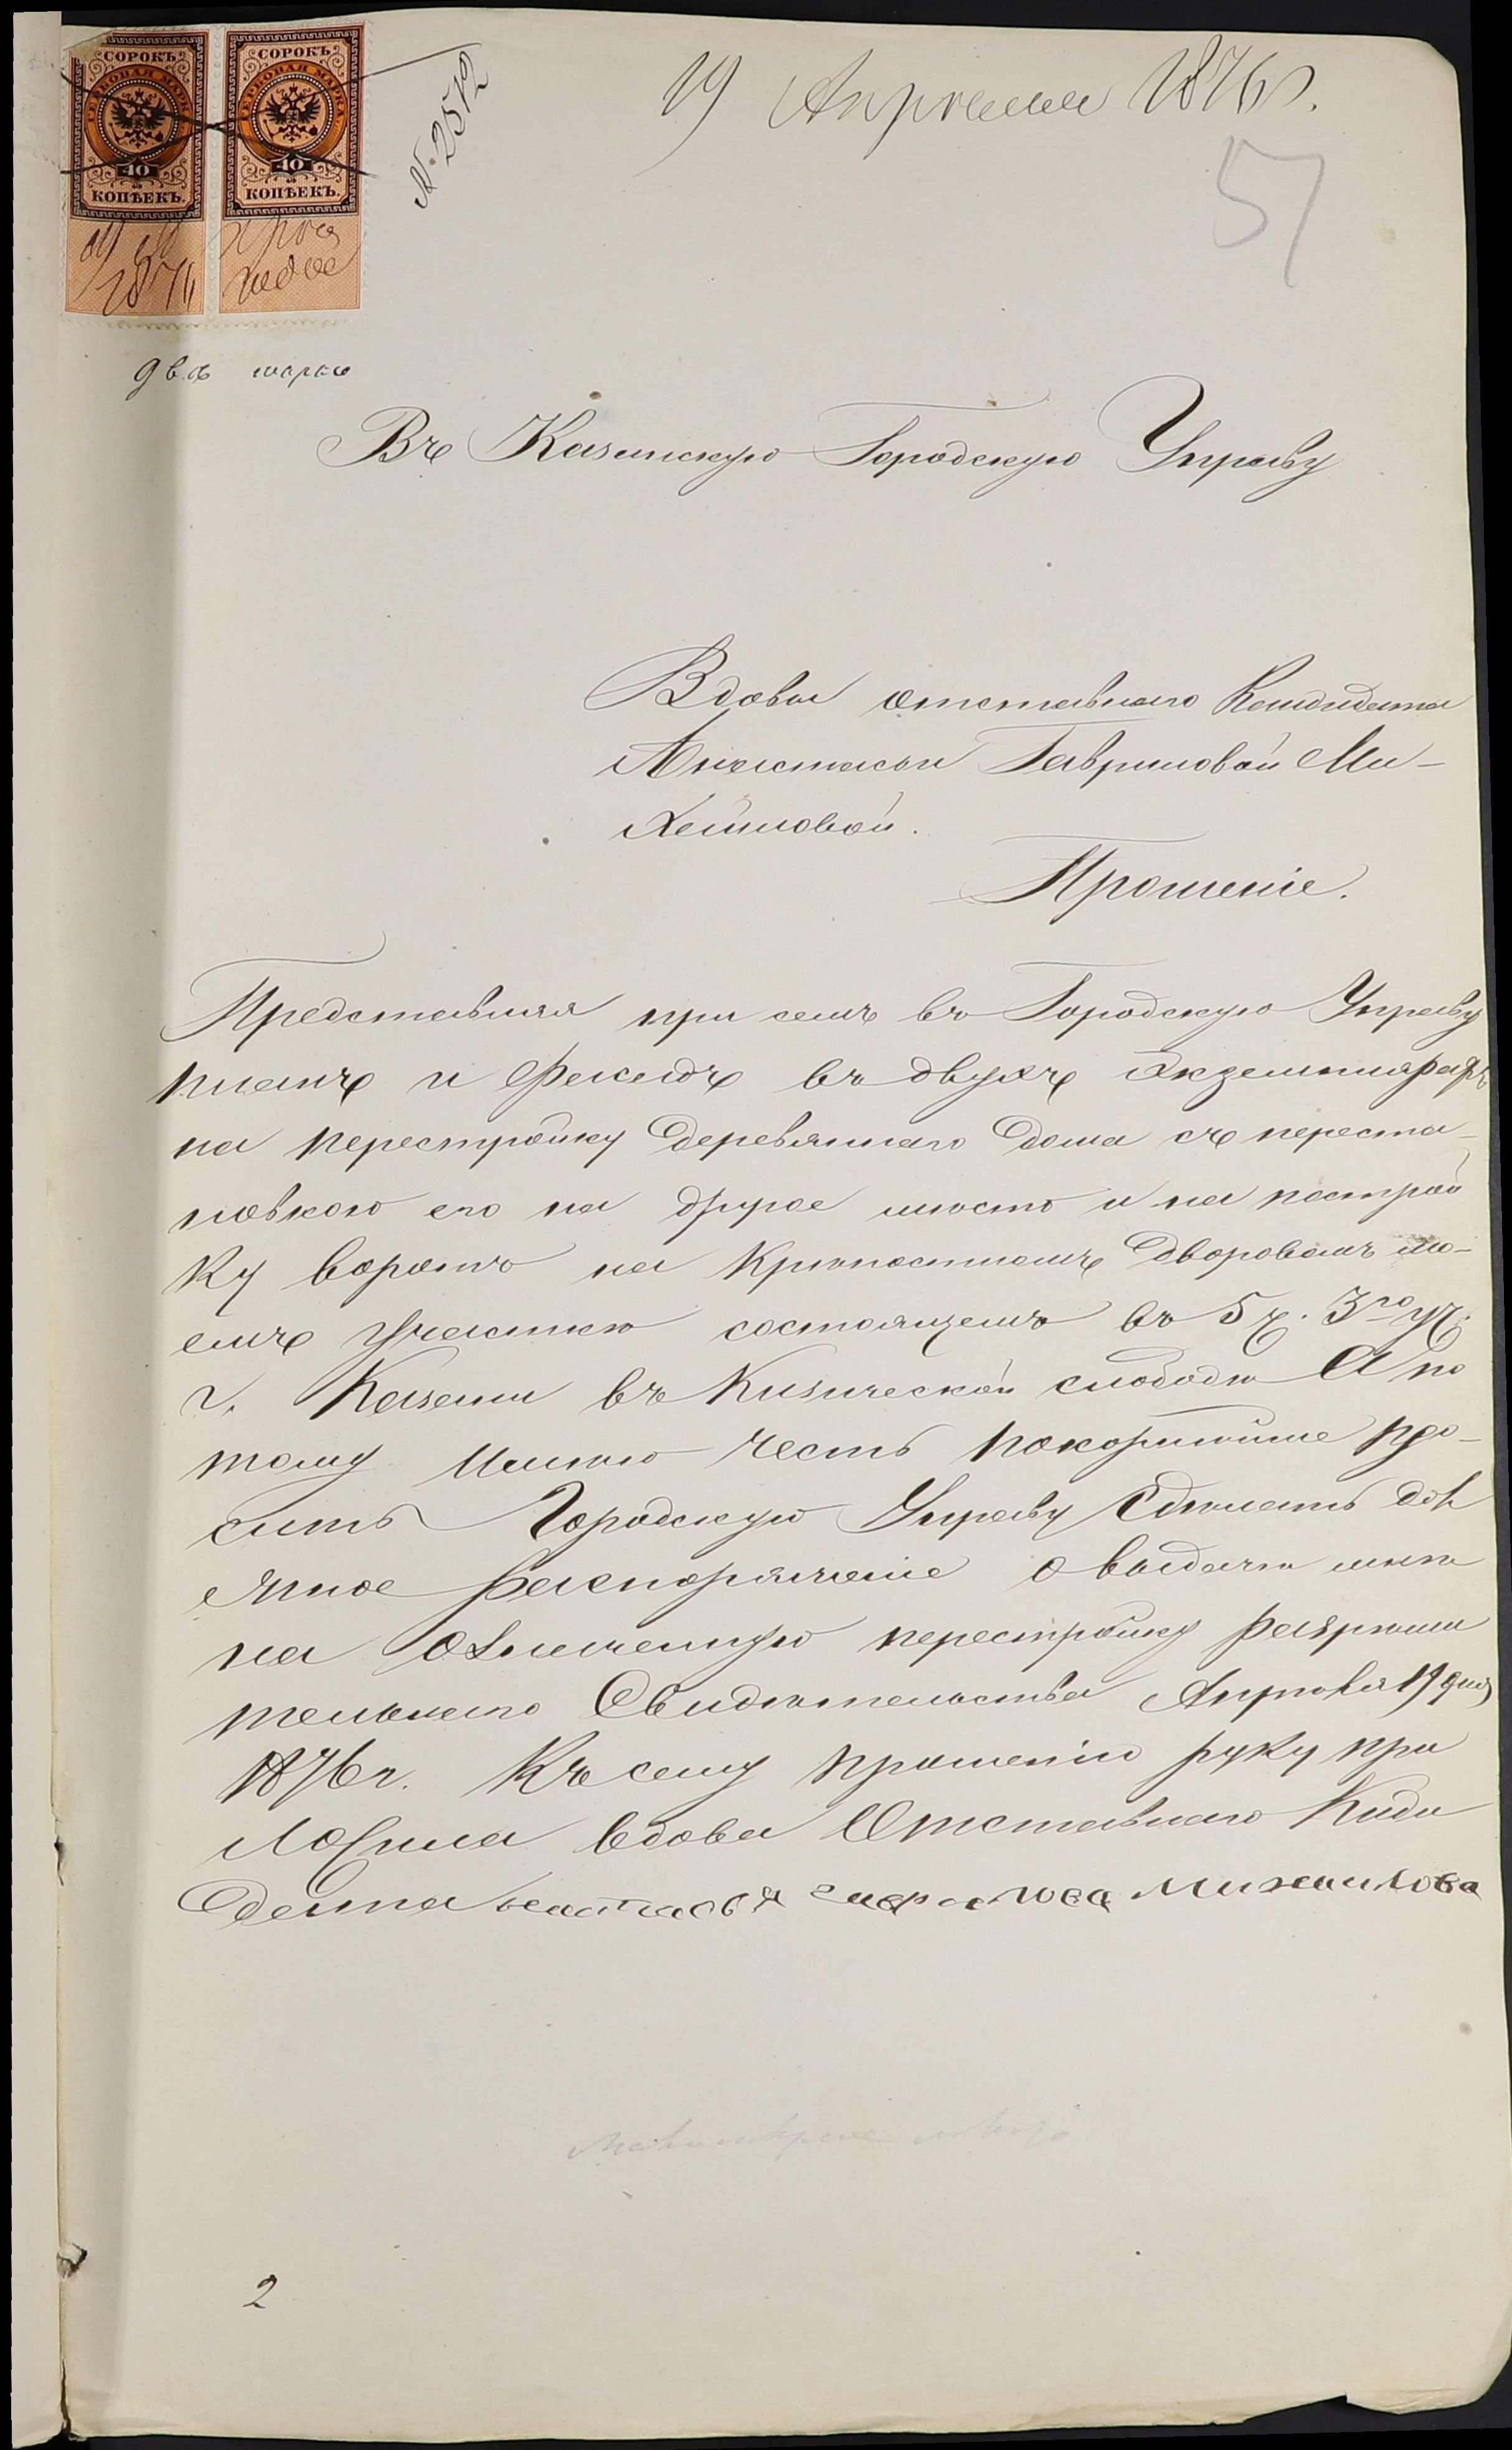 СОРОКЪ СОРОКЪ
ГЕРБОВАЯ МАРКА ГЕРБОВАЯ МАРКА
40 40
КОПѢЕКЪ. КОПѢЕКЪ.
1876
№ 2512
19 Апрѣля 1876 г.
57
двѣ марки
Въ Казанскую Городскую Управу
Вдовы отставнаго Кандидата
Анастасьи Гавриловой Ми-
хайловой.
Прошеніе.
Представляя при семъ въ Городскую Управу
планъ и фасадъ въ двухъ экземплярахъ
на перестройку деревяннаго дома съ переста-
новкою его на другое мѣсто и на построй
ку воротъ на крѣпостномъ дворовомъ мо-
емъ участкѣ состоящемъ въ 5 ч. 3го уч.
г. Казани въ Кизической слободѣ А по
тому имѣю честь покорнѣйше про-
сить Городскую Управу сдѣлать дол
жное распоряженіе о выдачѣ мнѣ
на означенную перестройку разрѣши
тельнаго Свидѣтельства Апрѣля 19 дня
1876 г. Къ сему прошенію руку при
ложила вдова Отставнаго Кади
дата настасья гаврилова Михаилова
2